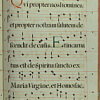 Qui propter nos homines
et propter nostram salutem de
scendit de cælis. Et incarna
tus est de Spiritu sancto ex
Maria Virgine, et Homo fac